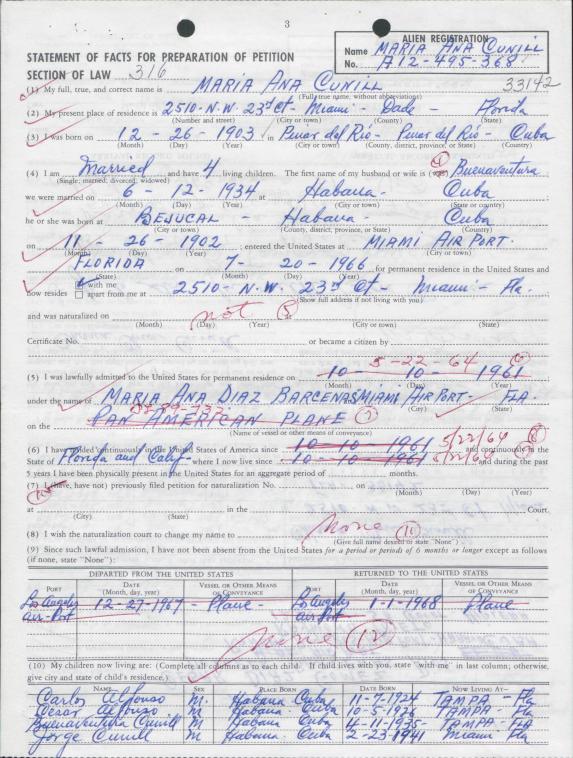 3
ALIEN REGISTRATION
Name MARIA ANA CUNILL
No. A12-495-368
33142
STATEMENT OF FACTS FOR PREPARATION OF PETITION
SECTION OF LAW 316
(1) My full, true, and correct name is MARIA ANA CUNILL
(Full true name, without abbreviations)
(2) My present place of residence is 2510-N.W. 23rd Ct. Miami - Dade - Florida
(Number and street) (City or town) (County) (State)
(3) I was born on 12 - 26 - 1903 in Pinar del Rio - Pinar del Rio - Cuba
(Month) (Day) (Year) (City or town) (County, district, province, or state) (Country)
(4) I am Married and have 4 living children. The first name of my husband or wife is Buenaventura
(Single; married; divorced; widowed)
we were married on 6 - 12 - 1934 at Habana - Cuba
(Month) (Day) (Year) (City or town) (State or country)
he or she was born at BEJUCAL - Habana - Cuba
(City or town) (County, district, province, or State) (Country)
on 11 - 26 - 1902 ; entered the United States at MIAMI AIR PORT.
(Month) (Day) (Year) (City or town)
FLORIDA on 7 - 20 - 1966 for permanent residence in the United States and
(State) (Month) (Day) (Year)
now resides with me
apart from me at 2510 - N.W. 23rd Ct - Miami - Fla.
(Show full address if not living with you)
and was naturalized on not (5) at
(Month) (Day) (Year) (City or town) (State)
Certificate No. or became a citizen by
5-22-64 (6)
(5) I was lawfully admitted to the United States for permanent residence on 10 - 10 - 1961
(Month) (Day) (Year)
under the name of MARIA ANA DIAZ BARCENAS MIAMI AIR PORT - FLA.
(City) (State)
on the PAN AMERICAN PLANE (7)
(Name of vessel or other means of conveyance)
(6) I have resided continuously in the United States of America since 10-10-1961 5/22/64 (8) and continuously in the
State of Florida and Calif. where I now live since 10-10-1961 5/22/64 and during the past
5 years I have been physically present in the United States for an aggregate period of months.
(10)
(7) I (have, have not) previously filed petition for naturalization No. on
(Month) (Day) (Year)
at in the Court.
(City) (State)
(8) I wish the naturalization court to change my name to None (11)
(Give full name desired or state "None")
(9) Since such lawful admission, I have not been absent from the United States for a period or periods of 6 months or longer except as follows
(if none, state "None"):
DEPARTED FROM THE UNITED STATES RETURNED TO THE UNITED STATES
PORT DATE (Month, day, year) VESSEL OR OTHER MEANS OF CONVEYANCE PORT DATE (Month, day, year) VESSEL OR OTHER MEANS OF CONVEYANCE
Los Angeles 12-27-1967 - Plane - Los Angeles 1-1-1968 Plane
Air-Port Air Port
None (12)
(10) My children now living are: (Complete all columns as to each child. If child lives with you, state "with me" in last column; otherwise,
give city and state of child's residence.)
NAME SEX PLACE BORN DATE BORN NOW LIVING AT—
Carlos Alfonso M. Habana Cuba 11-9-1924 TAMPA - Fla
Cesar Alfonso M Habana Cuba TAMPA - Fla
Buenaventura Cunill M Habana Cuba 4-11-1935 - TAMPA - FLA
Jorge Cunill M Habana Cuba 2-23-1941 Miami Fla